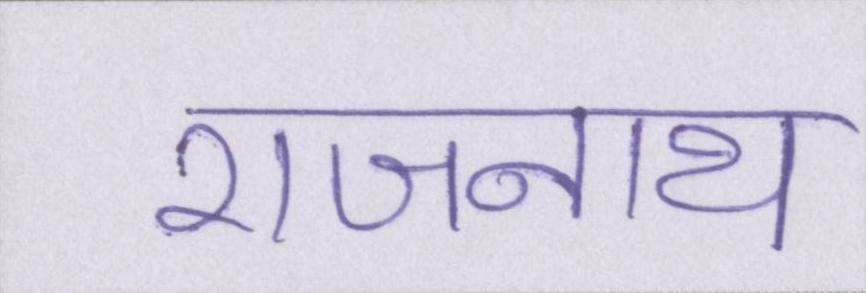 राजनाथ